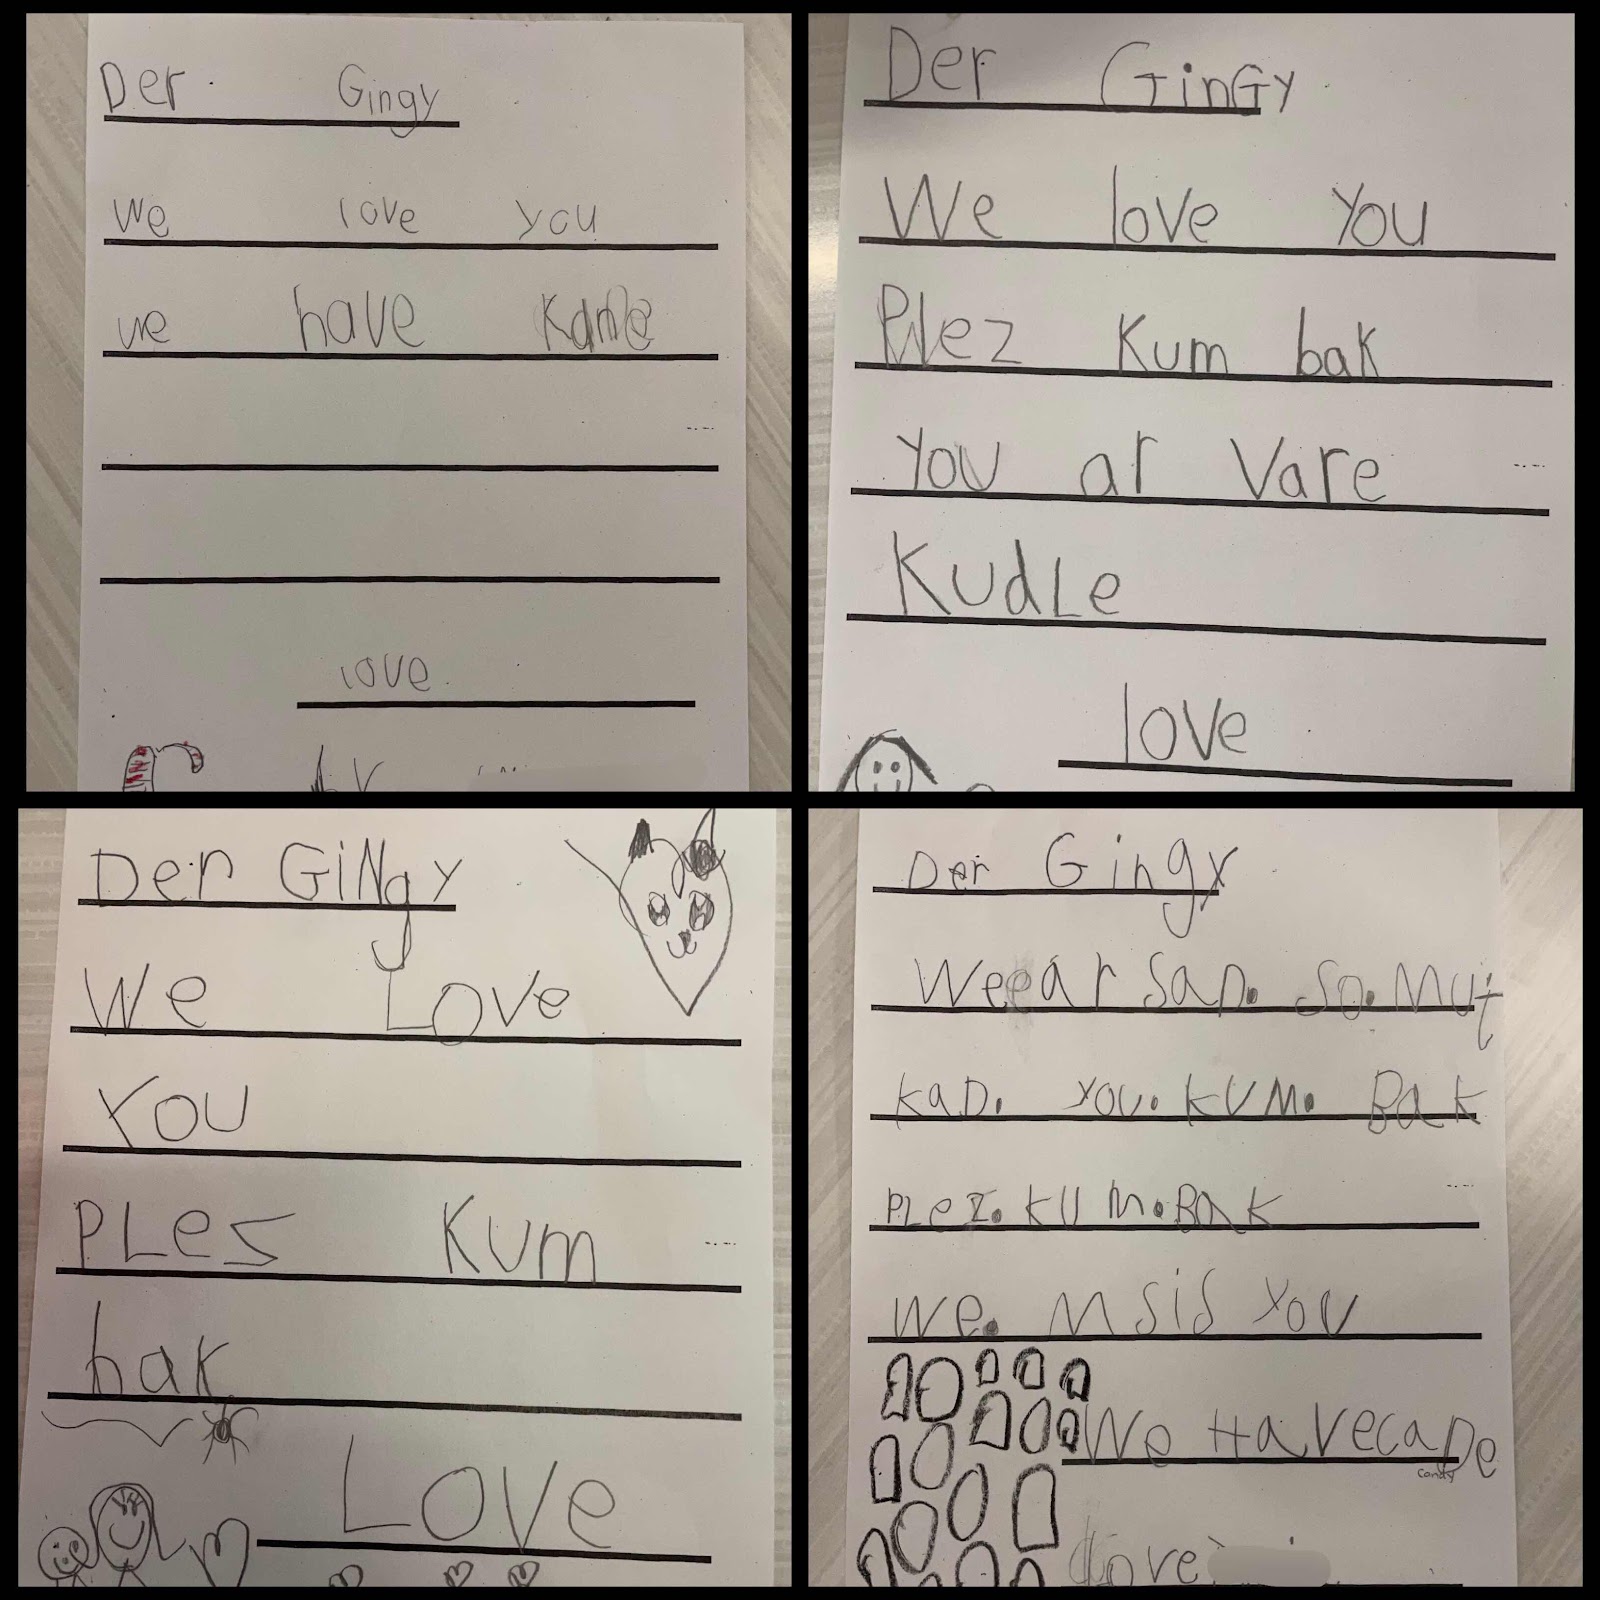 Der Gingy
We love you
we have
love
Der GinGy
We love You
Plez Kum bak
You ar Vare
KudLe
love
Der GiNgy
We Love
You
PLes Kum
bak
Love
Der Gingy
Wee ar San. So. Mut
KaD. You. KUM. BaK
PLeZ. KUM. BaK
We. MSiS You
We HaVecaDe
Candy
love